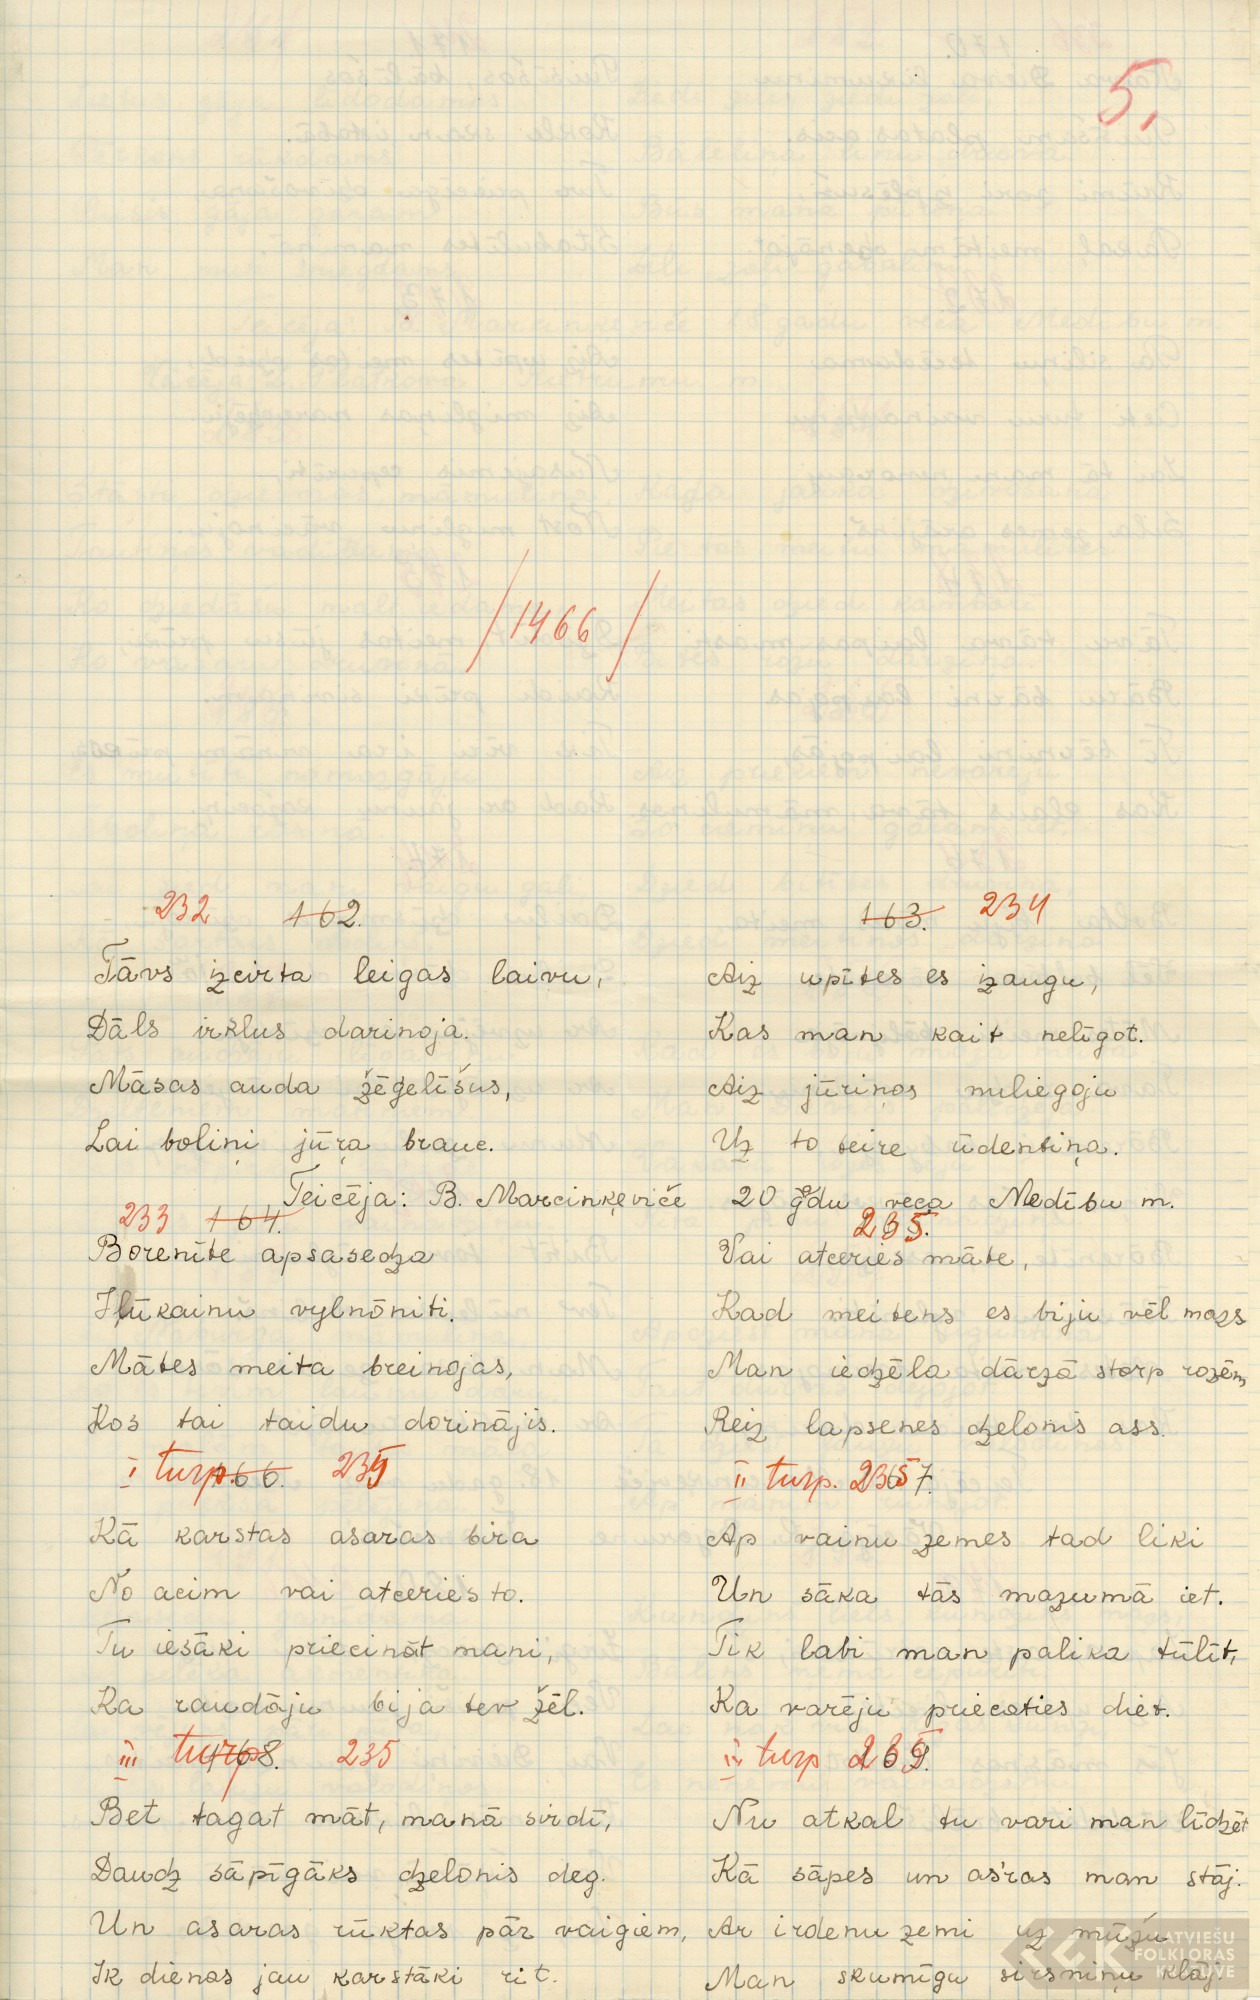 5.
/1466/
232 162.
Tāvs izcirta leigas laivu,
Dāls irklus darinoja.
Māsas auda žēģelīšus,
Lai boliņi jūŗa brauc.
163. 234
Aiz upītes es izaugu,
Kas man kait nelīgot.
Aiz jūriņos muliegoju
Uz to teire ūdentiņa.
Teicēja: B. Marcinķeviče 20 gdu veca Medību m.
233 164.
Borenīte apsasedza
Ilūkainu vylnōniti.
Mātes meita breinojas,
Kos tai taidu dorinājis.
235.
Vai atceries māte,
Kad meitens es biju vēl mazs
Man iedzēla dārzā storp rozēm
Reiz lapsenes dzelonis ass.
I turp. 166. 235
Kā karstas asaras bira
No acim vai atceries to.
Tu iesāki priecināt mani,
Ka raudāju bija tev žēl.
II turp. 235 167.
Ap vainu zemes tad liki
Un sāka tās mazumā iet.
Tik labi man palika tūlīt,
Ka varēju priecoties diet.
III turp 168. 235
Bet tagat māt, manā sirdī,
Daudz sāpīgāks dzelonis deg.
Un asaras rūktas pār vaigiem,
Ik dienas jau karstāki rit.
IV turp 235.
Nu atkal tu vari man līdzēt
Kā sāpes un as'ras man stāj.
Ar irdenu zemi uz mūžu
Man skumīgu sirsniņu klāj.
LATVIEŠU
FOLKLORAS
KRĀTUVE